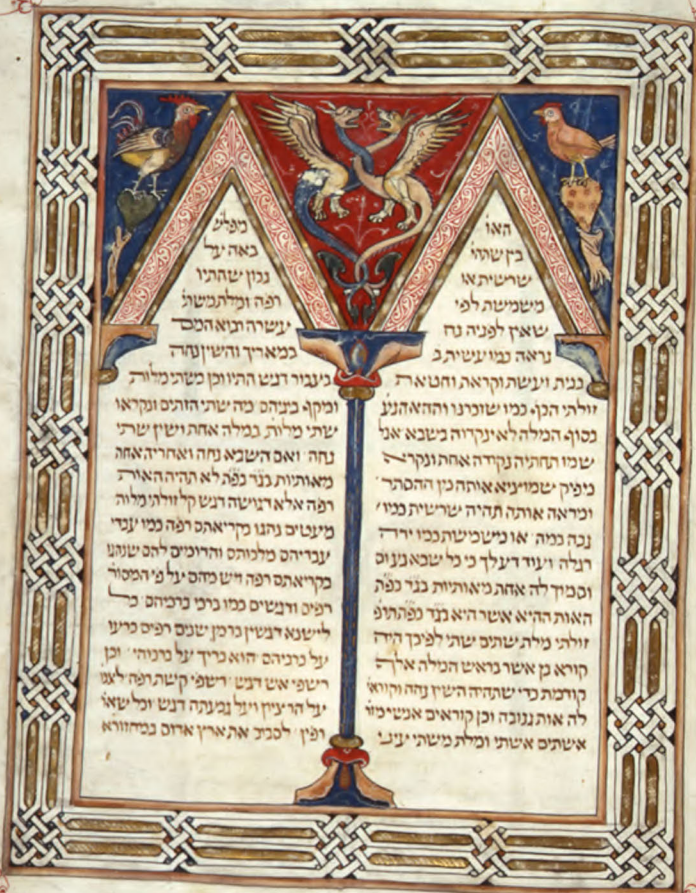 האו
בין שתהי
שרשית או
משמשת לפי
שאין לפניה נח
נראה כמו עשית ב
בנית ועשת וקראת וחטאת
זולתי הכף כמו שזכרנו וההא הנע
בסוף המלה לא ינקדוה בשבא אבל
שמו תחתיה נקודה אחת ונקרא
מפיק שמוציא אותה מן ההסתר
ומראה אותה תהיה שרשית כמו
גבה כמה או משמשת כמו ידה
רגלה ועוד דע לך כי כל שבא
וסמוך לה אחת מאותיות בגד כפת
האות ההיא אשר היא בגד
זולתי מלת שתים שתי לפיכך היה
קורא בן אשר בראש המלה אלף
קודמת כדי שתהיה השין נחה וקורא
לה אות וכן קוראים אנשי מזר
אשתים אשתי ומלת משתי
מפלש
באה על
נכון שהתיו
רפה ומלת משתי
עשרה רבוא
במאריך והשין נחה
בעבור דגש התיו וכן משתי מלות
ומקף ביניהם מה שתי הזתים ונקראו
שתי מלות במלה אחת ושין שתי
נחה ואם השבא נחה ואחריה אחה
מאותיות בגד כפת לא תהיה האות
רפה אלא דגושה דגש קל זולתי מלות
מעטים נהגו בקריאתם רפה כמו עבדי
עבדיהם מלכותם והדומים להם שנהגו
בקריאתם רפה ויש מהם על פי המסור
רפים ודגשים כמו ברכי ברכיהם כל
לישנא דגשין בר מן שנים רפים כרעו
על ברכיהם הוא בריך על ברכוהי וכן
רשפי אש דגש רשפי קשת רפה
על ועל דגש וכל שאר
רפין לסבב את ארץ אדום במחזורא